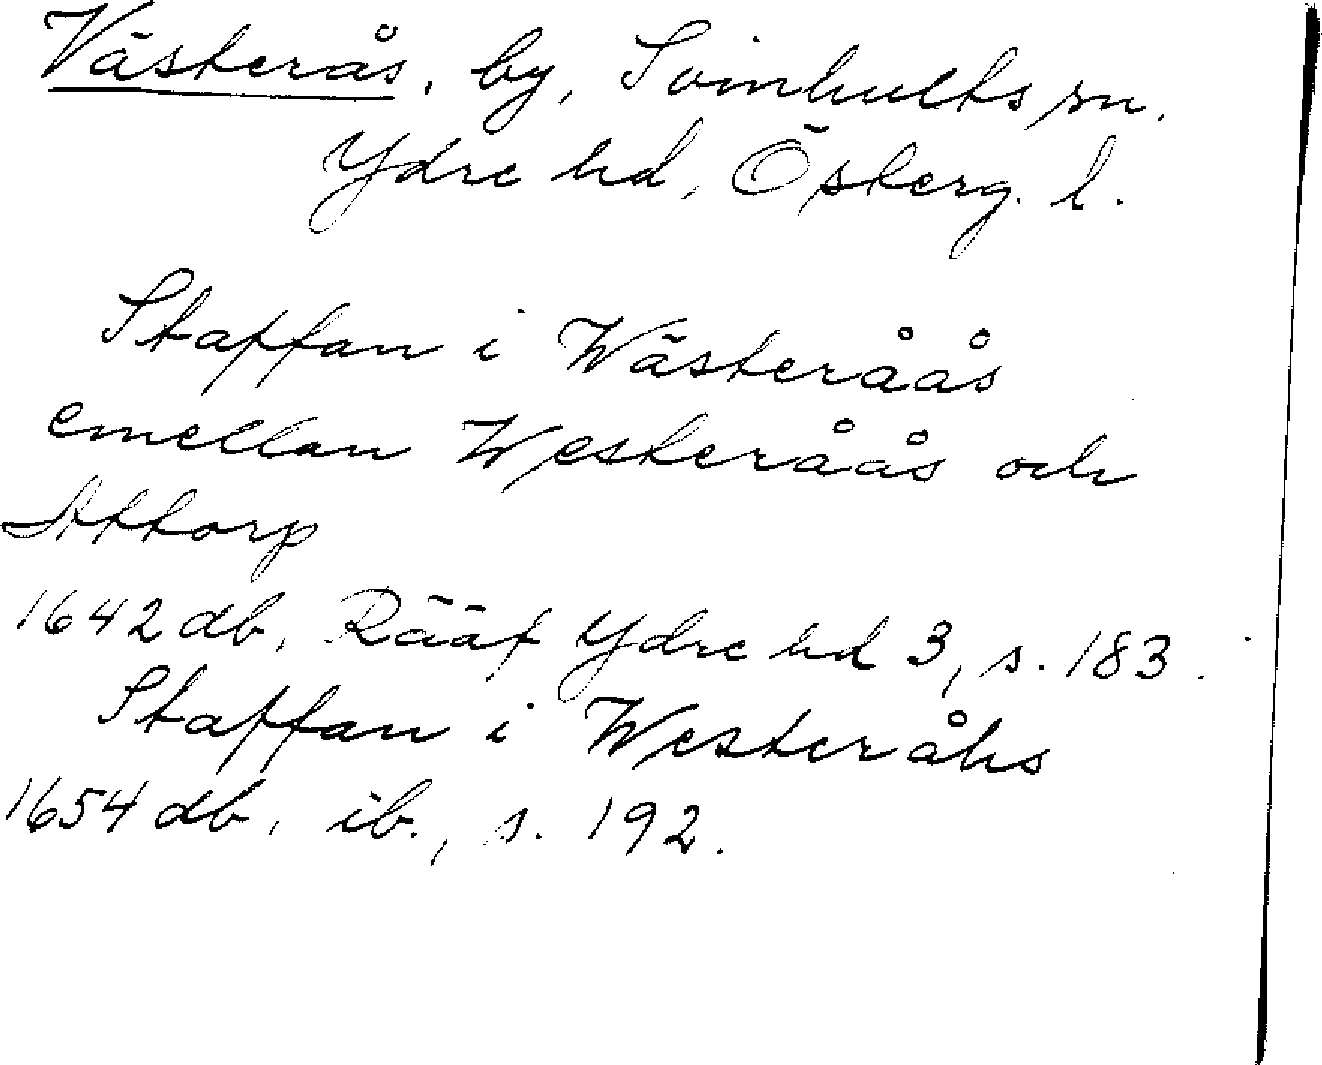 Västerås, by, Svinhults sn.
Ydre hd, Österg. l.
Staffan i Wästeråås
emellan Westeråås och
Attorp
1642 db, Rääf Ydre hd 3, s. 183.
Staffan i Westeråhs
1654 db, ib., s. 192.